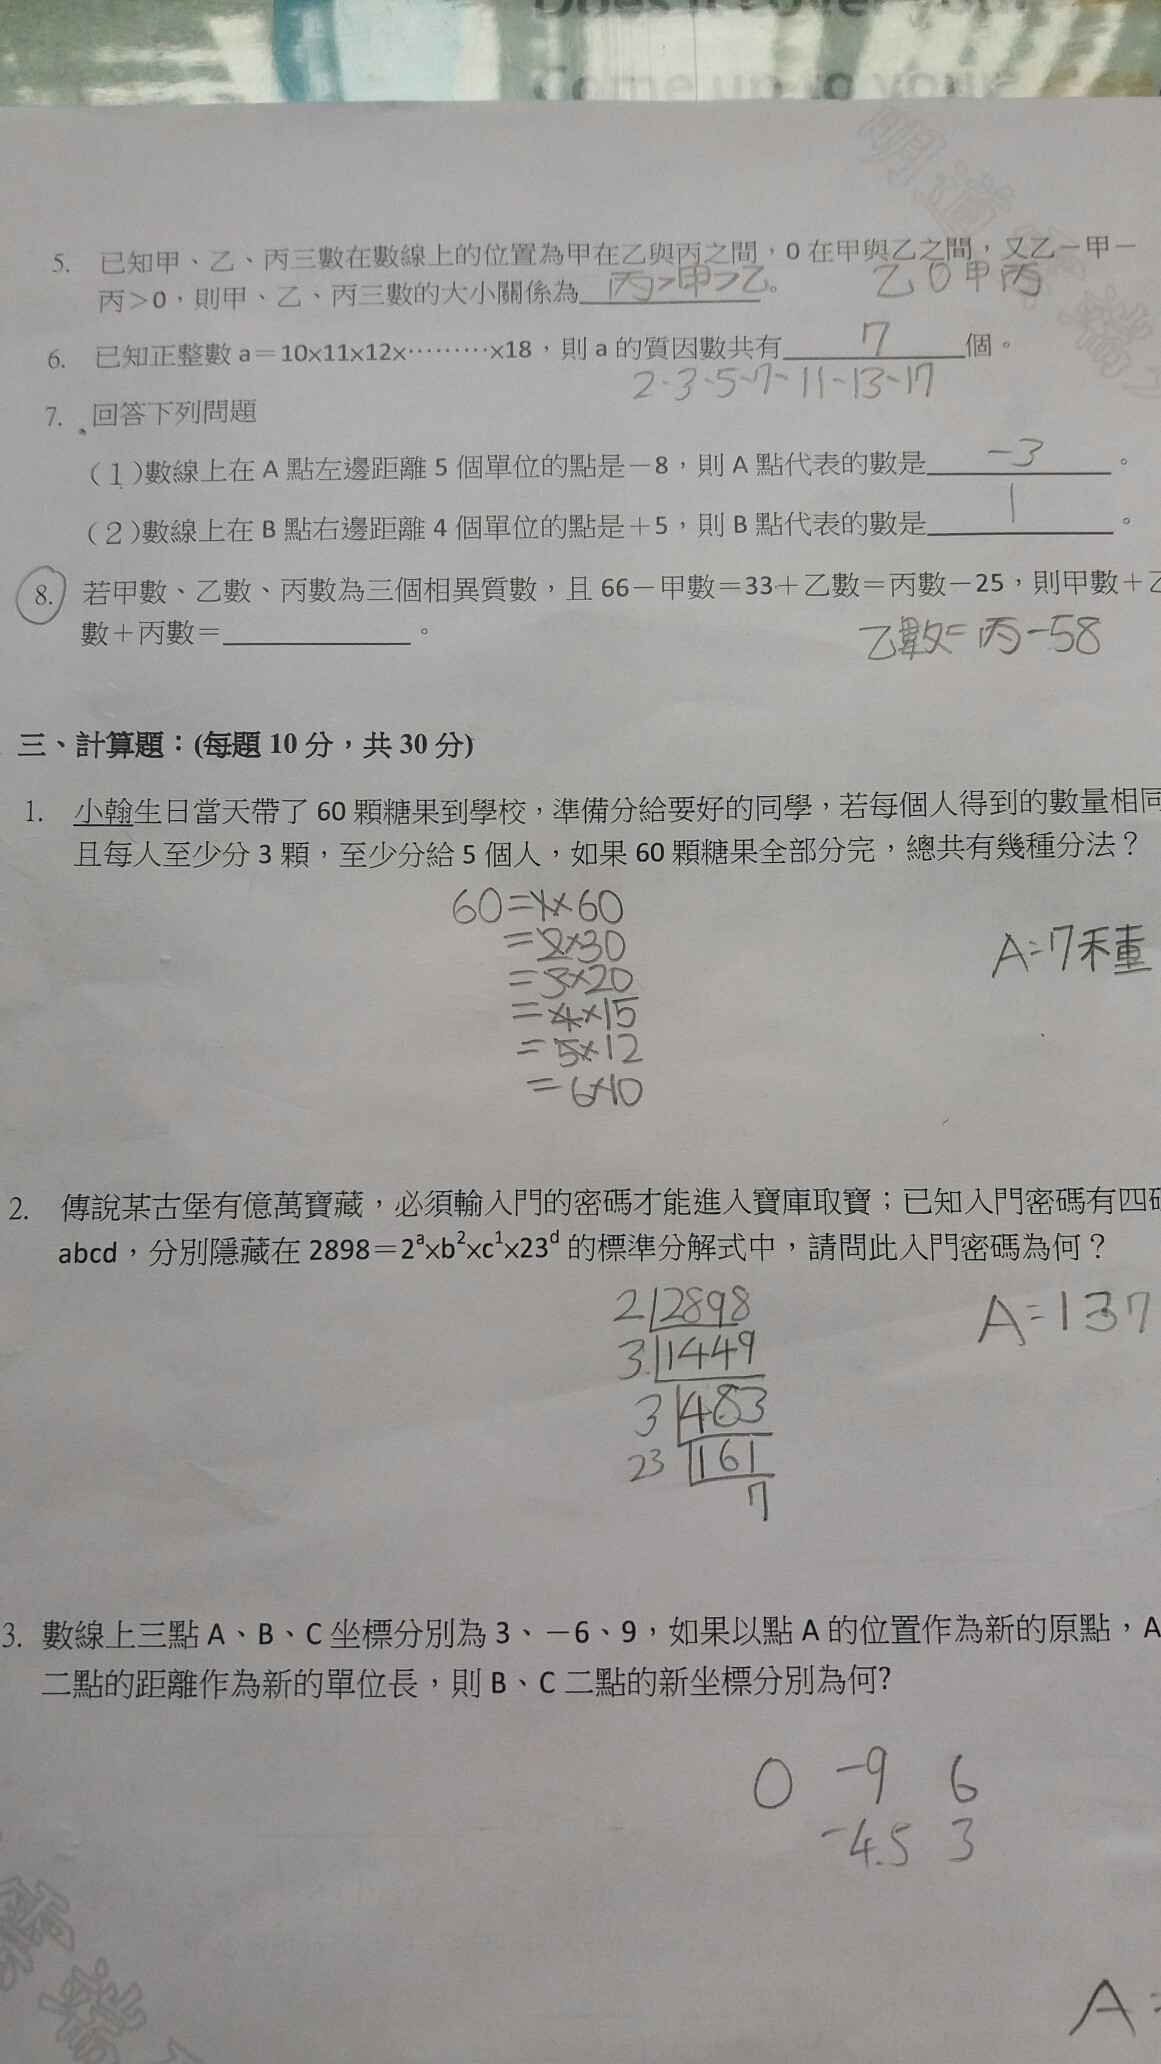 Come up to your
明道
5. 已知甲、乙、丙三數在數線上的位置為甲在乙與丙之間，0 在甲與乙之間，又乙－甲－
丙＞0，則甲、乙、丙三數的大小關係為 丙>甲>乙 。
乙 0 甲 丙
6. 已知正整數 a＝10×11×12×⋯⋯⋯×18，則 a 的質因數共有 7 個。
2、3、5、7、11、13、17
7. 回答下列問題
（1）數線上在 A 點左邊距離 5 個單位的點是－8，則 A 點代表的數是 -3 。
（2）數線上在 B 點右邊距離 4 個單位的點是＋5，則 B 點代表的數是 1 。
8. 若甲數、乙數、丙數為三個相異質數，且 66－甲數＝33＋乙數＝丙數－25，則甲數＋乙
數＋丙數＝ 。
乙數=丙-58
三、計算題：(每題 10 分，共 30 分)
1. 小翰生日當天帶了 60 顆糖果到學校，準備分給要好的同學，若每個人得到的數量相同
且每人至少分 3 顆，至少分給 5 個人，如果 60 顆糖果全部分完，總共有幾種分法？
60=1×60
=2×30
=3×20
=4×15
=5×12
=6×10
A=7種
2. 傳說某古堡有億萬寶藏，必須輸入門的密碼才能進入寶庫取寶；已知入門密碼有四碼
abcd，分別隱藏在 2898＝2ᵃ×b²×c¹×23ᵈ 的標準分解式中，請問此入門密碼為何？
2 2898
3 1449
3 483
23 161
7
A=137
3. 數線上三點 A、B、C 坐標分別為 3、－6、9，如果以點 A 的位置作為新的原點，A
二點的距離作為新的單位長，則 B、C 二點的新坐標分別為何?
0 -9 6
-4.5 3
A=